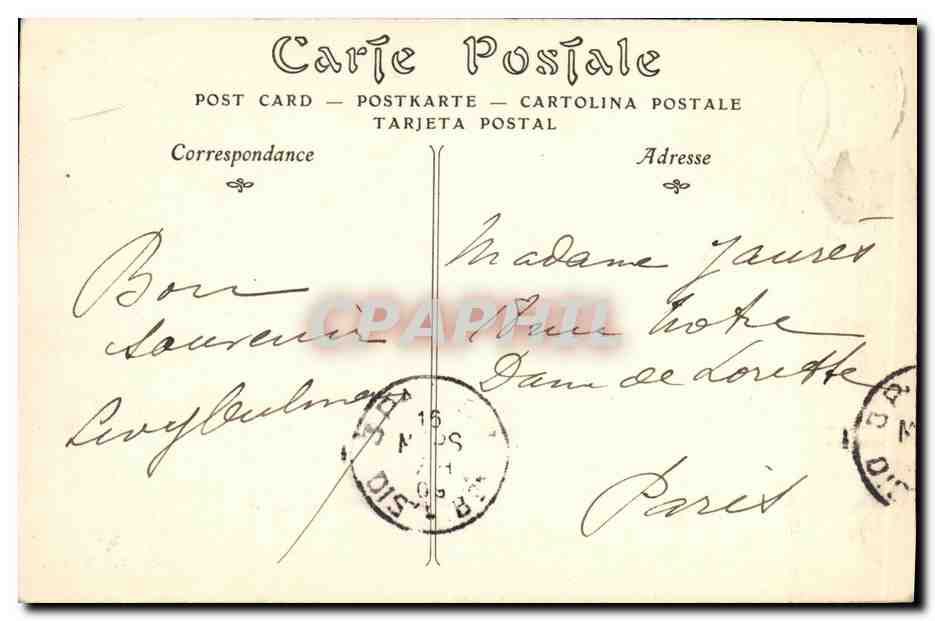 Carte Postale
POST CARD — POSTKARTE — CARTOLINA POSTALE
TARJETA POSTAL
Correspondance
Adresse
Bon
souvenir
Madame Jaurès
Notre
Dame de Lorette
Paris
CPAPHIL
16